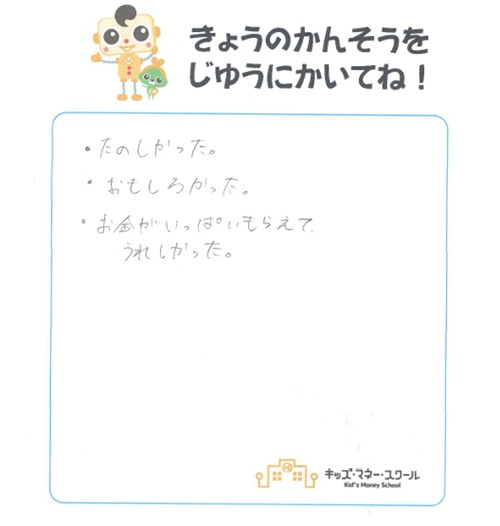 きょうのかんそうを
じゆうにかいてね！
・たのしかった。
・おもしろかった。
・お金がいっぱいもらえて、
うれしかった。
キッズ・マネー・スクール
Kid's Money School